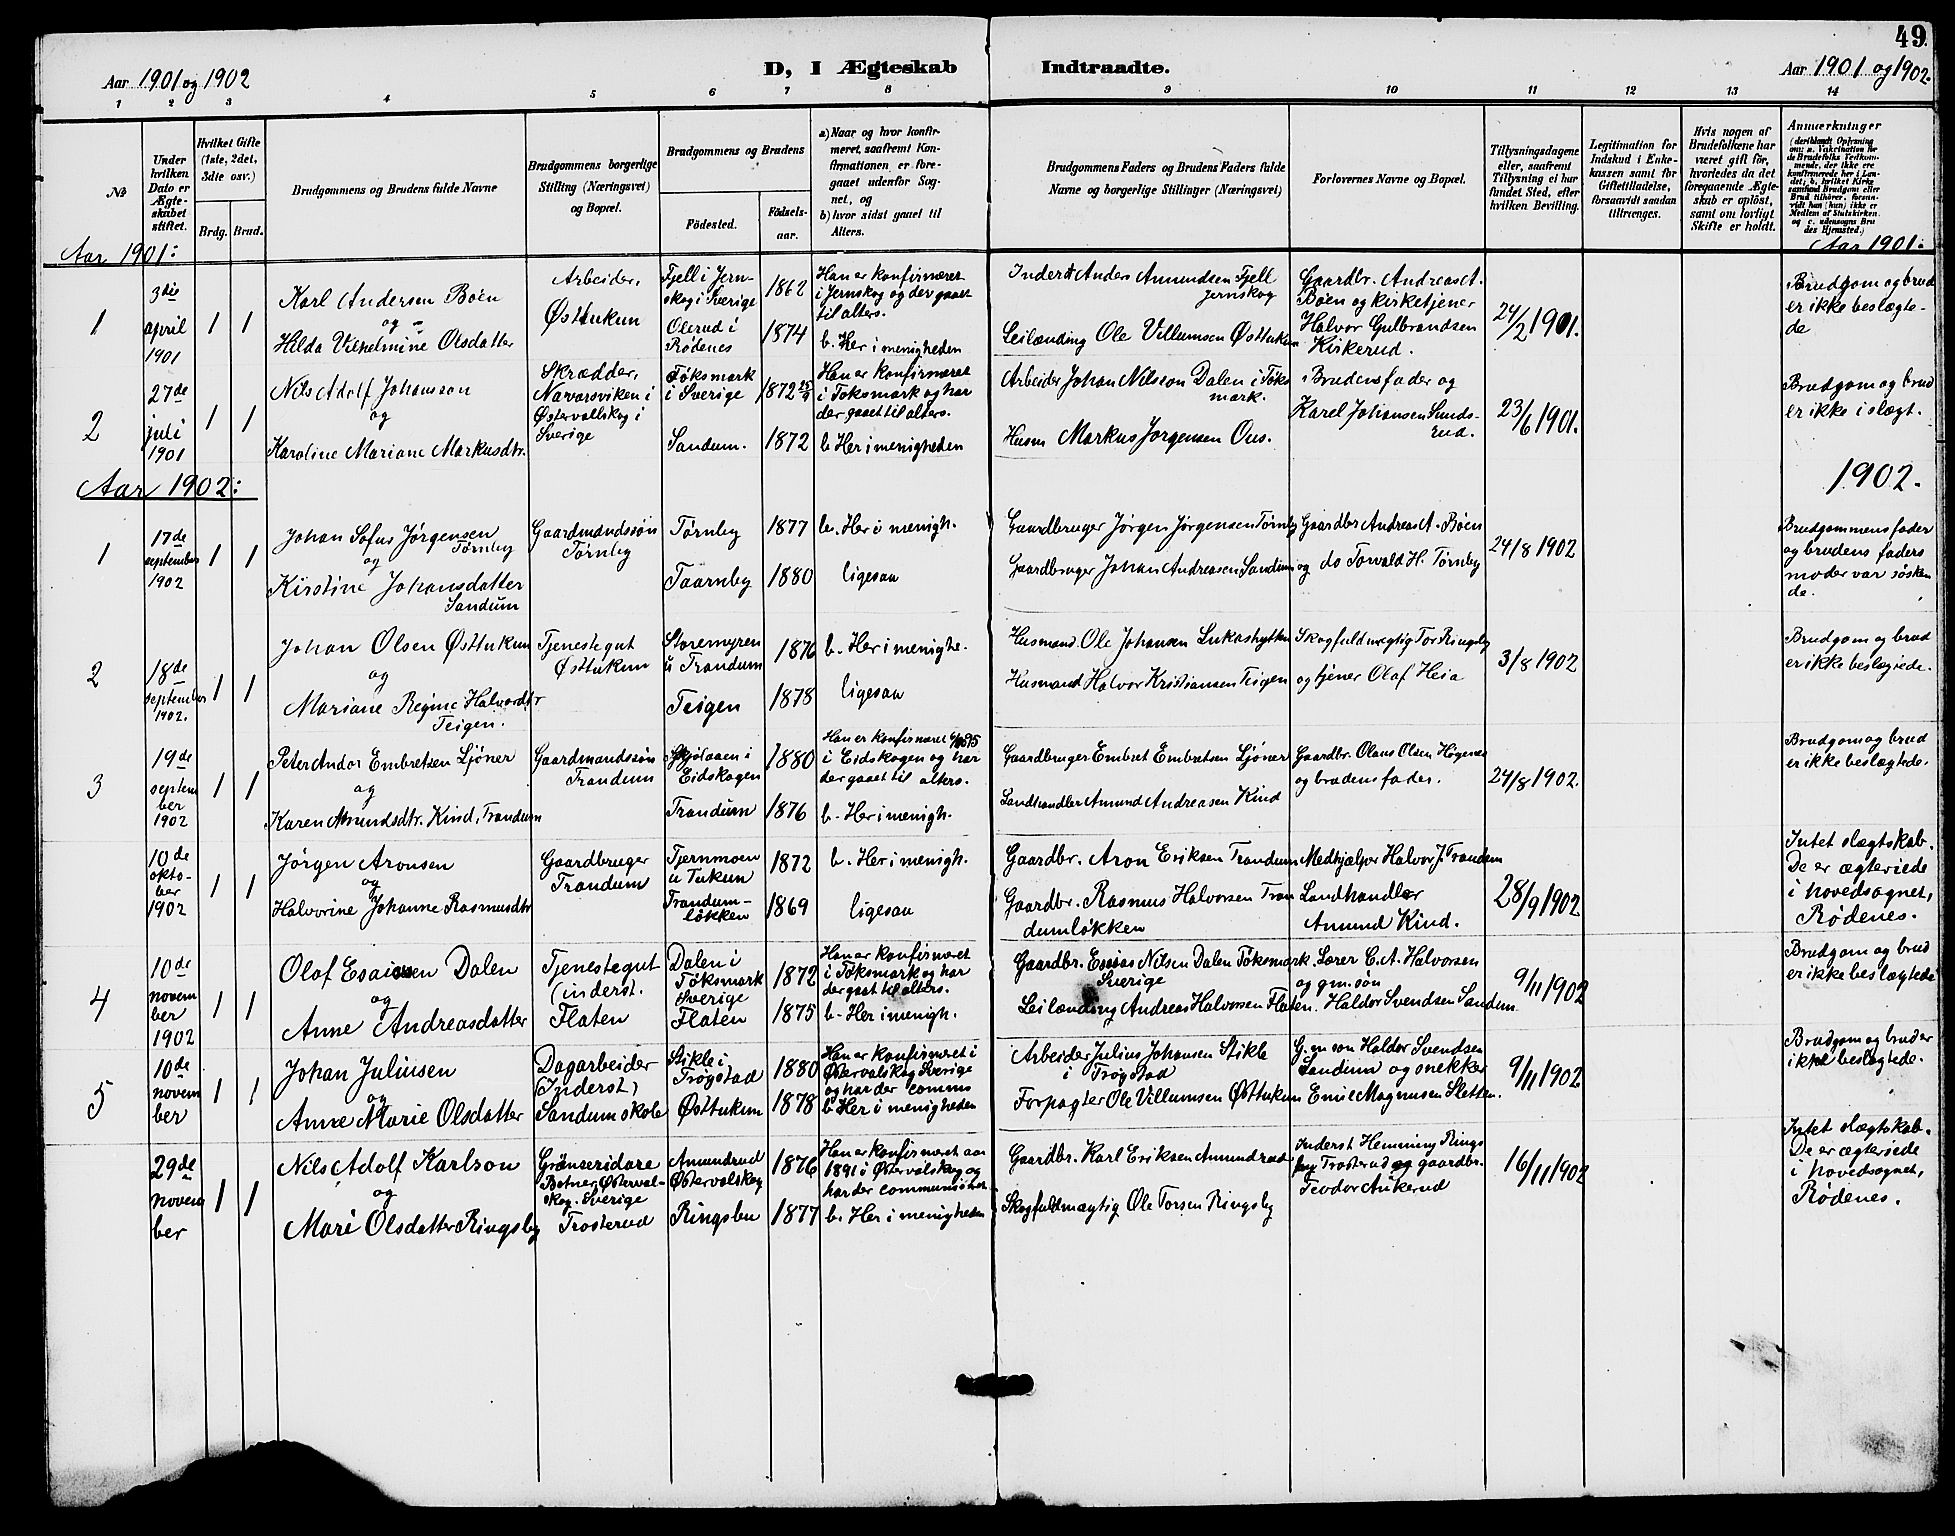 49
Aar 1901 og 1902
D, I Ægteskab Indtraadte.
Aar 1901 og 1902.
1 2 3 4 5 6 7 8 9 10 11 12 13 14
№
Under hvilken Dato er Ægteskabet stiftet.
Hvilket Gifte (1ste, 2det, 3die osv.)
Brdg. Brud.
Brudgommens og Brudens fulde Navne
Brudgommens borgerlige Stilling (Næringsvei) og Bopæl.
Brudgommens og Brudens
Fødested.
Fødselsaar.
a) Naar og hvor konfirmeret, saafremt Konfirmationen er foregaaet udenfor Sognet, og
b) hvor sidst gaaet til Alters.
Brudgommens Faders og Brudens Faders fulde Navne og borgerlige Stillinger (Næringsvei)
Forlovernes Navne og Bopæl.
Tillysningsdagene eller, saafremt Tillysning ei har fundet Sted, efter hvilken Bevilling.
Legitimation for Indskud i Enkekassen samt for Giftetilladelse, forsaavidt saadan tiltrænges.
Hvis nogen af Brudefolkene har været gift før, hvorledes da det foregaaende Ægteskab er opløst, samt om lovligt Skifte er holdt.
Anmærkninger
(deriblandt Oplysning om: a. Vakcination for de Brudefolks Vedkommende, der ikke ere konfirmerede her i Landet; b. hvilket Kirkesamfund Brudgom eller Brud tilhører, forsaavidt han (hun) ikke er Medlem af Statskirken, og c. udensogns Brudes Hjemsted.)
Aar 1901:
Aar 1901:
1
3die
april
1901
1 1
Karl Andersen Böen
og
Hilda Vilhelmine Olsdatter
Arbeider,
Østtukun
Fjell i Jernskog i Sverige
Olerud i Rødenes
1862
1874
Han er konfirmeret
i Jernskog og der gaaet
til alters.
b. Her i menigheden
Inderst Anders Amundsen Fjell
Jernskog
Leilænding Ole Villumsen Østtukun
Gaardbr. Andreas A.
Böen og kirketjener
Halvor Gulbrandsen
Kirkerud.
24/2 1901.
Brudgom og brud
er ikke beslægtede
2
27de
juli
1901
1 1
Nils Adolf Johansson
og
Karoline Mariane Markusdtr.
Skrædder,
Navarsviken i
Østervallskog i
Sverige
Töksmark
i Sverige
Sandum.
1872 25/9
1872
Han er konfirmeret
i Töksmark og har
der gaaet til alters.
b. Her i menigheden
Arbeider Johan Nilsson Dalen i Töksmark.
Husm Markus Jørgensen Ous.
Brudens fader og
Karel Johansen Sundsrud.
23/6 1901.
Brudgom og brud
er ikke i slægt.
Aar 1902:
1902.
1
17de
september
1902
1 1
Johan Sofus Jørgensen
Tørnby
og
Kirstine Johansdatter
Sandum
Gaardmandssøn
Tørnby
Tørnby
Taarnby
1877
1880
b. Her i menigh.
ligesaa
Gaardbruger Jørgen Jørgensen Tørnby
Gaardbruger Johan Andreasen Sandum
Gaardbr Andreas A. Böen
og do Torvald H. Tørnby
24/8 1902
Brudgommens fader
og brudens faders
moder var søskende.
2
18de
september
1902.
1 1
Johan Olsen Østtukun
og
Mariane Regine Halvordtr
Teigen.
Tjenestegut
Østtukun
Storemyren
u Trandum
Teigen
1876
1878
b. Her i menighe.
ligesaa
Husmand Ole Johansen Lukashytten
Husmand Halvor Kristiansen Teigen
Skogfuldmægtig Tor Ringsby
og tjener Olaf Heia
3/8 1902
Brudgom og brud
er ikke beslægtede.
3
19de
september
1902
1 1
Peter Andor Embretsen Ljöner
og
Karen Amundsdtr. Kind, Trandum
Gaardmandssøn
Trandum
Skjölaaen i
Eidskogen
Trandum
1880
1876
Han er konfirmeret 1895
i Eidskogen og har
der gaaet til alters.
b. Her i menigh.
Gaardbruger Embret Embretsen Ljöner
Landhandler Amund Andreasen Kind
Gaardbr. Olaus Olsen Högenes
og brudens fader.
24/8 1902.
Brudgom og brud
er ikke beslægtede.
10de
oktober
1902
1 1
Jørgen Aronsen
og
Halvorine Johanne Rasmusdtr
Gaardbruger
Trandum
Tjernmoen
u Tukun
Trandumløkken
1872
1869
b. Her i menigh.
ligesaa
Gaardbr. Aron Eriksen Trandum
Gaardbr. Rasmus Halvorsen Trandumløkken
Medhjælper Halvor J. Trandum
Landhandler
Amund Kind.
28/9 1902
Intet slægtskab.
De er ægteviede
i hovedsognet,
Rødenes.
4
10de
november
1902
1 1
Olaf Esaiasen Dalen
og
Anne Andreasdatter
Tjenestegut
(inderst.
Flaten
Dalen i
Töksmark
Sverige
Flaten
1872
1875
Han er konfirmeret
i Töksmark og har
der gaat til alters.
b. Her i menigh.
Gaardbr. Esaias Nilsen Dalen Töksmark.
Sverige
Leilænding Andreas Halvorsen Flaten.
Lærer C. A. Halvorsen
og gm. søn
Haldor Svendsen Sandum
9/11 1902
Brudgom og brud
er ikke beslægtede
5
10de
november
1 1
Johan Juliusen
og
Anne Marie Olsdatter
Dagarbeider
(Inderst)
Sandum skole
Stikle i
Trøgstad
Østtukun
1880
1878
Han er konfirmeret i
Østervalskog Sverige
og har der comms
b. Her i menigheden
Arbeider Julius Johansen Stikle
i Trøgstad
Forpagter Ole Villumsen Østtukun
G.m søn Haldor Svendsen
Sandum og snekker
Emil Magnusen Sletten.
9/11 1902
Brudgom og brud er
ikke beslægtede.
29de
november
1 1
Nils Adolf Karlson
og
Mari Olsdatter Ringsby
Grönseridare
Botner, Østervalskog. Sverige
Trosterud
Amundrud
Østervalskog
Ringsbu
1876
1877
Han er konfirmeret aar
1891 i Østervalskog og
har der communiseret
b. Her i menigheden
Gaardbr. Karl Eriksen Amundrud
Skogfuldmægtig Ole Torsen Ringsby
Inderst Hemming Ringsby
Trosterud og gaardbr.
Teodor Aukerud
16/11 1902
Intet slægtskab.
De er ægteviede
i hovedsognet,
Rødenes.